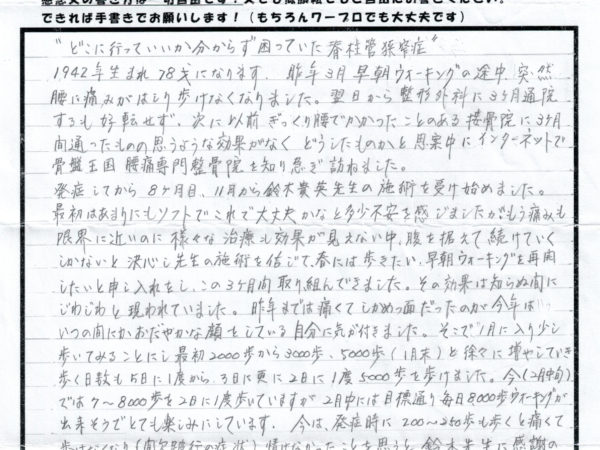 できれば手書きでお願いします！（もちろんワープロでも大丈夫です）
"どこに行っていいか分からず困っていた脊柱管狭窄症"
1942年生まれ78才になります。昨年3月早朝ウォーキングの途中、突然
腰に痛みがはしり歩けなくなりました。翌日から整形外科に3ヶ月通院
するも好転せず、次に以前ぎっくり腰でかかったことのある接骨院に3ヶ月
間通ったものの思うような効果がなくどうしたものかと思案中にインターネットで
骨盤王国 腰痛専門整骨院を知り急ぎ訪ねました。
発症してから8ヶ月目、11月から鈴木貴英先生の施術を受け始めました。
最初はあまりにもソフトでこれで大丈夫かなと多少不安を感じましたがもう痛みも
限界に近いのに様々な治療も効果が見えない中、腹を据えて続けていく
しかないと決心し先生の施術を信じて、春には歩きたい、早朝ウォーキングを再開
したいと申し入れをし、この3ヶ月間取り組んできました。その効果は知らぬ間に
じわじわと現われていました。昨年までは痛くてしかめっ面だったのが今年は
いつの間にかおだやかな顔をしている自分に気が付きました。そこで1月に入り少し
歩いてみることにし最初2000歩から3000歩、5000歩（1月末）と徐々に増やしていき
歩く日数も5日に1度から、3日に更に2日に1度5000歩を歩けました。今（2月中旬）
では7〜8000歩を2日に1度歩いていますが2月中には目標通り毎日8000歩ウォーキングが
出来そうでとても楽しみにしています。今は、発症時に200〜250歩も歩くと痛くて
歩けなくなり（間欠跛行の症状）情けなかったことを思うと、鈴木先生に感謝の